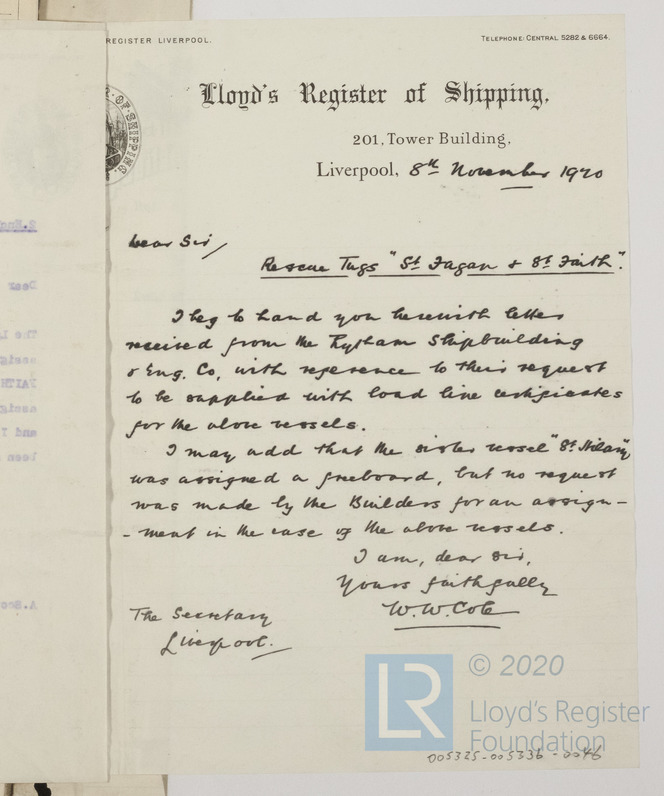 REGISTER LIVERPOOL.
TELEPHONE: CENTRAL 5282 & 6664.
Lloyd's Register of Shipping,
201, Tower Building,
Liverpool, 8th November 1920
Dear Sir/
Rescue Tugs "St Fagan & St Faith".
I beg to hand you herewith letter
received from the Lytham Shipbuilding
& Eng. Co, with reference to their request
to be supplied with load line certificates
for the above vessels.
I may add that the sister vessel "St Hilary",
was assigned a freeboard, but no request
was made by the Builders for an assign-
-ment in the case of the above vessels.
I am, dear Sir,
Yours faithfully
W.W. Cole
The Secretary
Liverpool.
LR
© 2020
Lloyd's Register
Foundation
005325-005336-0046